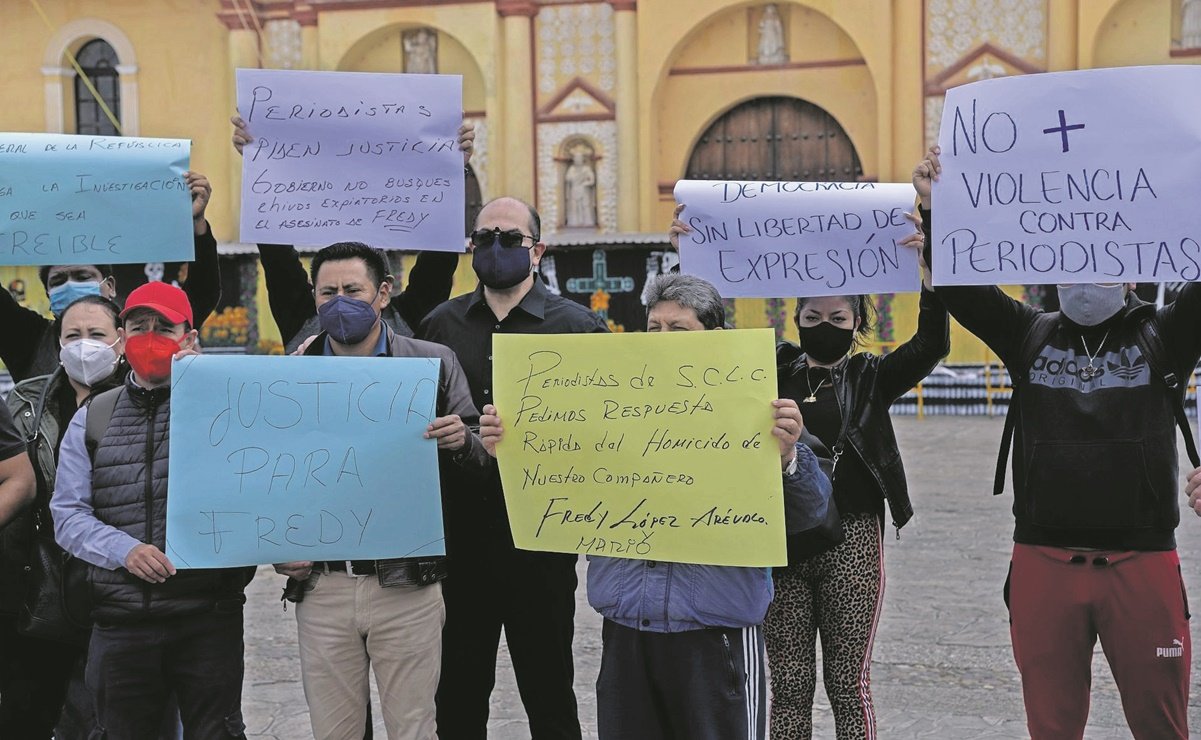 ERAL DE LA REPÚBLICA
LA INVESTIGACIÓN
QUE SEA
REIBLE
PERIODISTAS
PIDEN JUSTICIA
GOBIERNO NO BUSQUES
CHIVOS EXPIATORIOS EN
EL ASESINATO DE FREDY
DEMOCRACIA
SIN LIBERTAD DE
EXPRESIÓN
NO +
VIOLENCIA
CONTRA
PERIODISTAS
JUSTICIA
PARA
FREDY
PERIODISTAS DE S.C.L.C.
PEDIMOS RESPUESTA
RÁPIDA DEL HOMICIDO DE
NUESTRO COMPAÑERO
FREDY LÓPEZ ARÉVALO.
MARIO
adidas
ORIGINALS
PUMA